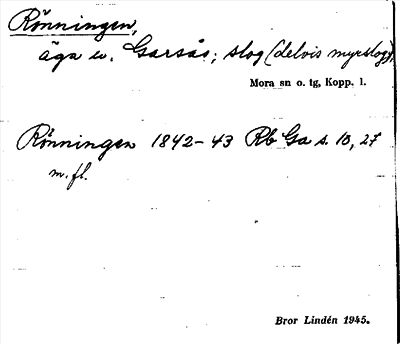 Rönningen,
äga u. Garsås; slog (delvis myrslog),
Mora sn o. tg, Kopp. l.
Rönningen 1842-43 Rb Ga s. 10, 27
m. fl.
Bror Lindén 1945.